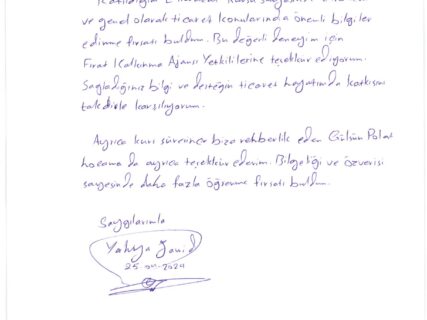 Katıldığım
ve genel olarak ticaret konularında önemli bilgiler
edinme fırsatı buldum. Bu değerli deneyim için
Fırat Kalkınma Ajansı Yetkililerine teşekkür ediyorum.
Sağladığınız bilgi ve desteğin ticaret hayatında katkısını
takdirle karşılıyorum.
Ayrıca kurs süresince bize rehberlik eden Gülsün Polat
hocama da ayrıca teşekkür ederim. Bilgeliği ve özverisi
sayesinde daha fazla öğrenme fırsatı buldum.
Saygılarımla
Yahya
25-04-2024